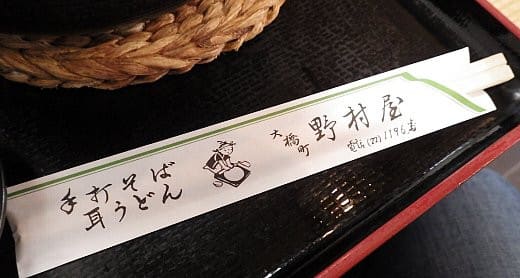 手打そば
耳うどん
大橋町
野村屋
電話(22)1196番